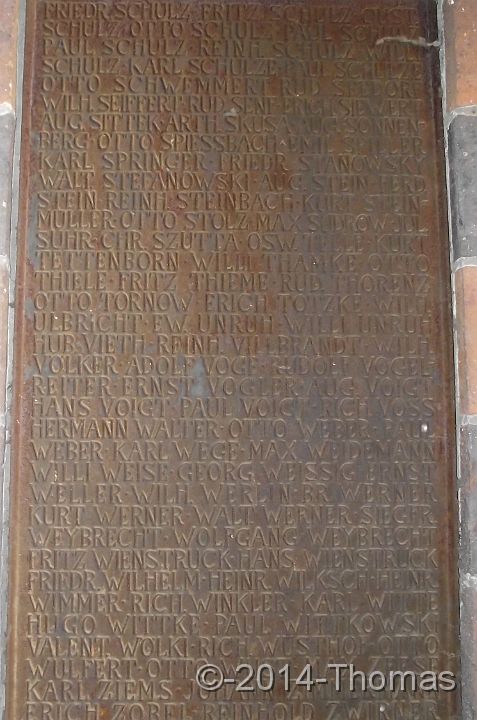 FRIEDR. SCHULZ · FRITZ SCHULZ · GUST.
SCHULZ · OTTO SCHULZ · PAUL
PAUL SCHULZ · REINH. SCHULZ · WILLI
SCHULZ · KARL SCHULZE · PAUL SCHULZE
OTTO SCHWEMMERT · RUD. SEEDORF
WILH. SEIFFERT · RUD. SENF · ERICH SIEWERT
AUG. SITTEK · ARTH. SKUSA · AUG. SONNEN-
BERG · OTTO SPIESSBACH · EMIL SPILLER
KARL SPRINGER · FRIEDR. STANOWSKY
WALT. STEFANOWSKI · AUG. STEIN · HERD.
STEIN · REINH. STEINBACH · KURT STEIN-
MÜLLER · OTTO STOLZ · MAX SUDROW · JUL.
SUHR · CHR. SZUTTA · OSW. TELLE · KURT
TETTENBORN · WILLI THAMKE · OTTO
THIELE · FRITZ THIEME · RUD. THORENZ
OTTO TORNOW · ERICH TOTZKE · WILH.
ULBRICHT · EW. UNRUH · WILLI UNRUH
HUB. VIETH · REINH. VILLBRANDT · WILH.
VÖLKER · ADOLF VOGE · RUDOLF VOGEL-
REITER · ERNST VOGLER · AUG. VOIGT
HANS VOIGT · PAUL VOIGT · RICH. VOSS
HERMANN WALTER · OTTO WEBER · PAUL
WEBER · KARL WEGE · MAX WEIDEMANN
WILLI WEISE · GEORG WEISSIG · ERNST
WELLER · WILH. WERLIN · BR. WERNER
KURT WERNER · WALT. WERNER · SIEGFR.
WEYBRECHT · WOLFGANG WEYBRECHT
FRITZ WIENSTRUCK · HANS WIENSTRUCK
FRIEDR. WILHELM · HEINR. WILKSCH · HEINR.
WIMMER · RICH. WINKLER · KARL WITTE
HUGO WITTKE · PAUL WITTKOWSKI
VALENT. WOLKI · RICH. WUSTHOF · OTTO
WULFERT · OTTO
KARL ZIEMS
ERICH ZOBEL · REINHOLD ZWIENER
©-2014-Thomas